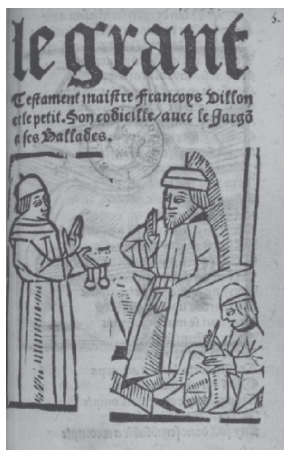 le grant
Testament maistre Francoys Villon
et le petit. Son codicille/auec le Jargō
a ses Ballades.